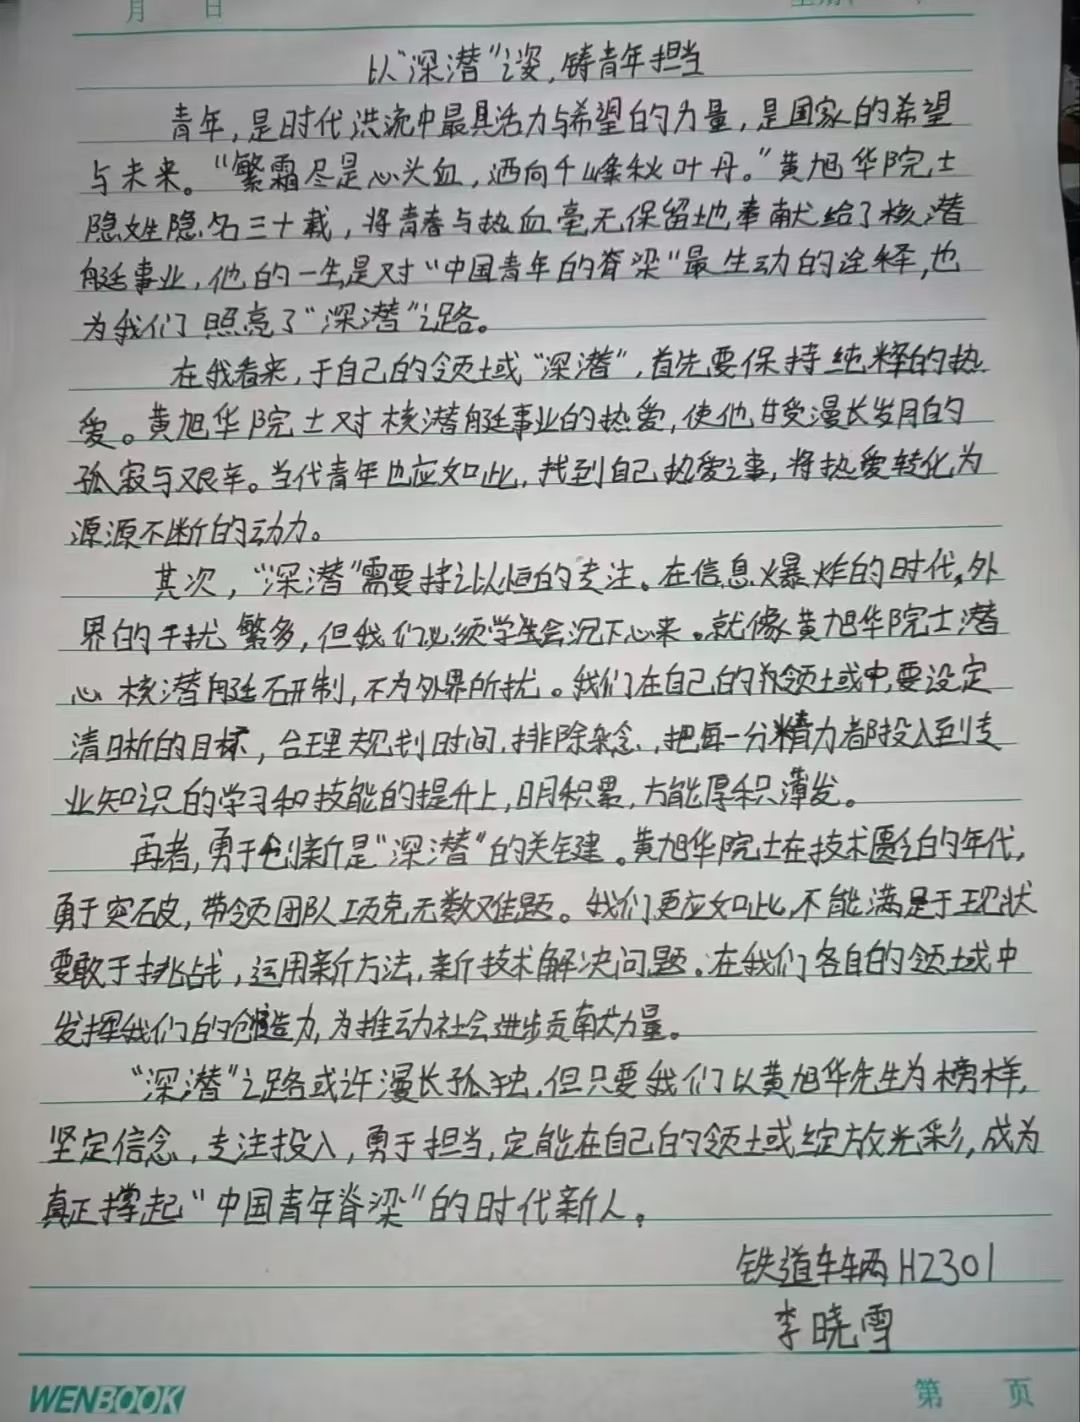 月 日
以“深潜”之姿,铸青年担当
青年,是时代洪流中最具活力与希望的力量,是国家的希望
与未来。“繁霜尽是心头血,洒向千峰秋叶丹。”黄旭华院士
隐姓隐名三十载,将青春与热血毫无保留地奉献给了核潜
艇事业,他的一生是对“中国青年的脊梁”最生动的诠释,也
为我们照亮了“深潜”之路。
在我看来,于自己的领域“深潜”,首先要保持纯粹的热
爱。黄旭华院士对核潜艇事业的热爱,使他甘受漫长岁月的
孤寂与艰辛。当代青年也应如此,找到自己热爱之事,将热爱转化为
源源不断的动力。
其次,“深潜”需要持之以恒的专注。在信息爆炸的时代,外
界的干扰繁多,但我们必须学会沉下心来。就像黄旭华院士潜
心核潜艇研制,不为外界所扰。我们在自己的领域中,要设定
清晰的目标,合理规划时间,排除杂念,把每一分精力都投入到专
业知识的学习和技能的提升上,日月积累,方能厚积薄发。
再者,勇于创新是“深潜”的关键。黄旭华院士在技术匮乏的年代,
勇于突破,带领团队攻克无数难题。我们更应如此,不能满足于现状
要敢于挑战,运用新方法,新技术解决问题。在我们各自的领域中
发挥我们的创造力,为推动社会进步贡献力量。
“深潜”之路或许漫长孤独,但只要我们以黄旭华先生为榜样,
坚定信念,专注投入,勇于担当,定能在自己的领域绽放光彩,成为
真正撑起“中国青年脊梁”的时代新人。
铁道车辆H2301
李晓雪
WENBOOK 第 页